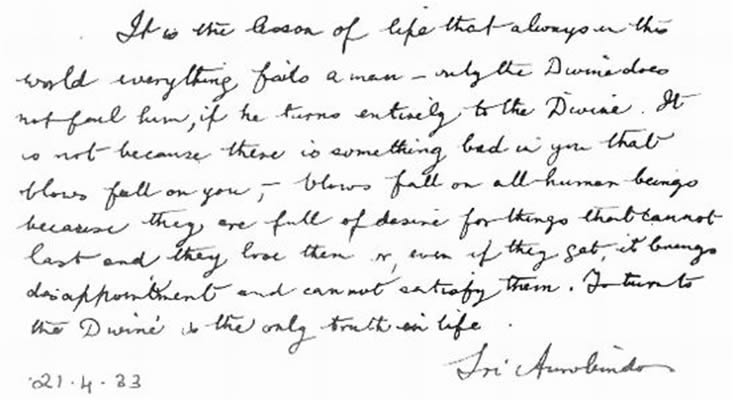 It is the lesson of life that always in this
world everything fails a man – only the Divine does
not fail him, if he turns entirely to the Divine. It
is not because there is something bad in you that
blows fall on you, – blows fall on all human beings
because they are full of desire for things that cannot
last and they lose them or, even if they get, it brings
disappointment and cannot satisfy them. To turn to
the Divine is the only truth in life.
Sri Aurobindo
21.4.33